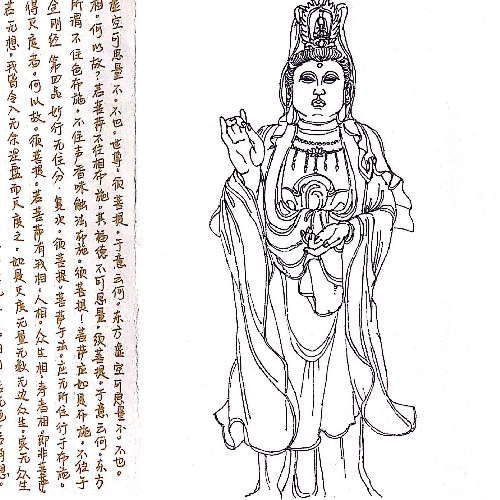 若无想。我皆令入无余涅盘而灭度之。如是灭度无量无数无边众生。实无众生
得灭度者。何以故。须菩提。若菩萨有我相。人相。众生相。寿者相。即非菩萨
金刚经 第四品 妙行无住分。复次。须菩提。菩萨于法。应无所住行于布施。
所谓不住色布施。不住声香味触法布施。须菩提！菩萨应如是布施。不住于
相。何以故？若菩萨不住相布施。其福德不可思量。须菩提。于意云何。东方
虚空可思量不。不也。世尊。须菩提。于意云何。东方虚空可思量不。不也。